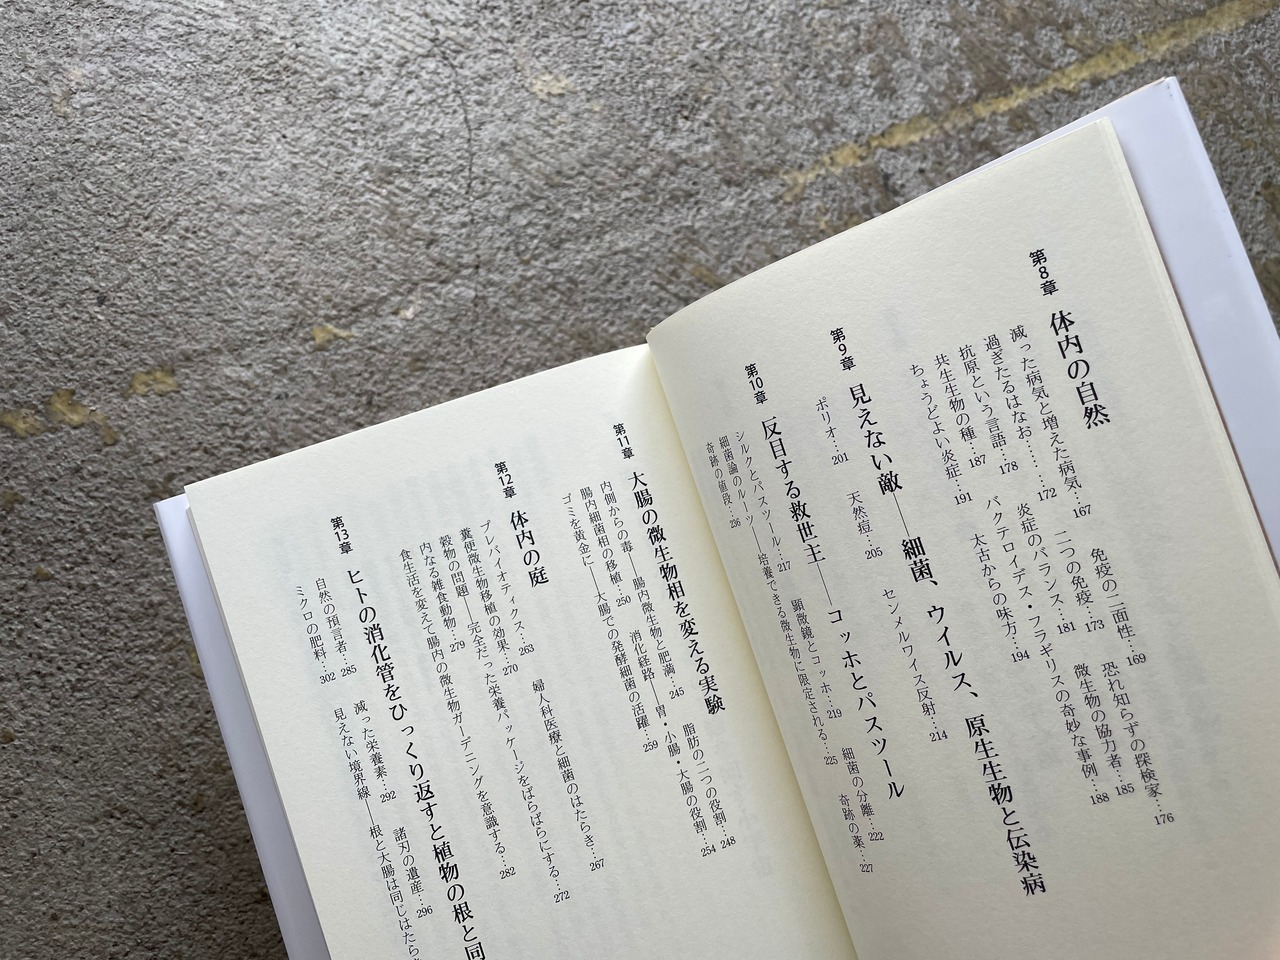 第8章 体内の自然
減った病気と増えた病気…167 免疫の二面性…169 恐れ知らずの探検家…176
過ぎたるはなお………172 二つの免疫…173 微生物の協力者…185
抗原という言語…178 炎症のバランス…181
共生生物の種…187 バクテロイデス・フラギリスの奇妙な事例…188
ちょうどよい炎症…191 太古からの味方…194
第9章 見えない敵――細菌、ウイルス、原生生物と伝染病
ポリオ…201 天然痘…205 センメルワイス反射…214
第10章 反目する救世主――コッホとパスツール
シルクとパスツール…217 顕微鏡とコッホ…219 細菌の分離…222
細菌論のルーツ――培養できる微生物に限定される…225 奇跡の薬…227
奇跡の値段…236
第11章 大腸の微生物相を変える実験
内側からの毒――腸内微生物と肥満…245 脂肪の二つの役割…248
腸内細菌相の移植…250 消化経路――胃・小腸・大腸の役割…254
ゴミを黄金に――大腸での発酵細菌の活躍…259
第12章 体内の庭
プレバイオティクス…263 婦人科医療と細菌のはたらき…267
糞便微生物移植の効果…270
穀物の問題――完全だった栄養パッケージをばらばらにする…272
内なる雑食動物…279
食生活を変えて腸内の微生物ガーデニングを意識する…282
第13章 ヒトの消化管をひっくり返すと植物の根と同
自然の預言者…285 減った栄養素…292 諸刃の遺産…296
ミクロの肥料…302 見えない境界線――根と大腸は同じはたら